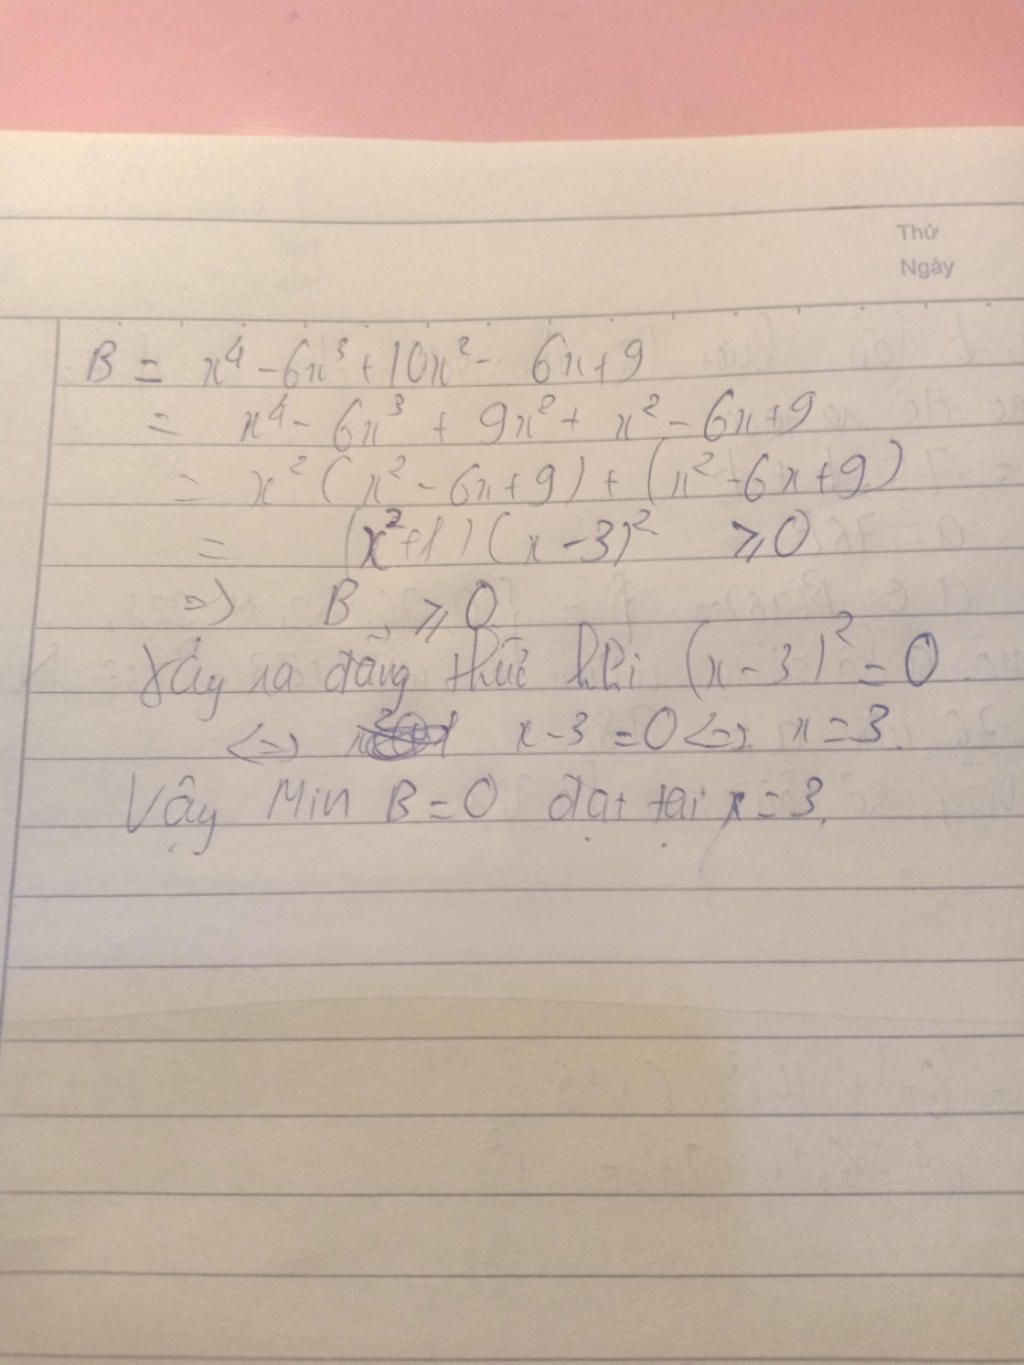 Thứ
Ngày
B = x⁴ - 6x³ + 10x² - 6x + 9
= x⁴ - 6x³ + 9x² + x² - 6x + 9
= x² ( x² - 6x + 9 ) + ( x² - 6x + 9 )
= (x² + 1) ( x - 3)² ⩾ 0
=> B ⩾ 0
Xảy ra đẳng thức khi (x - 3)² = 0
<=> x - 3 = 0 <=> x = 3.
Vậy Min B = 0 đạt tại x = 3.